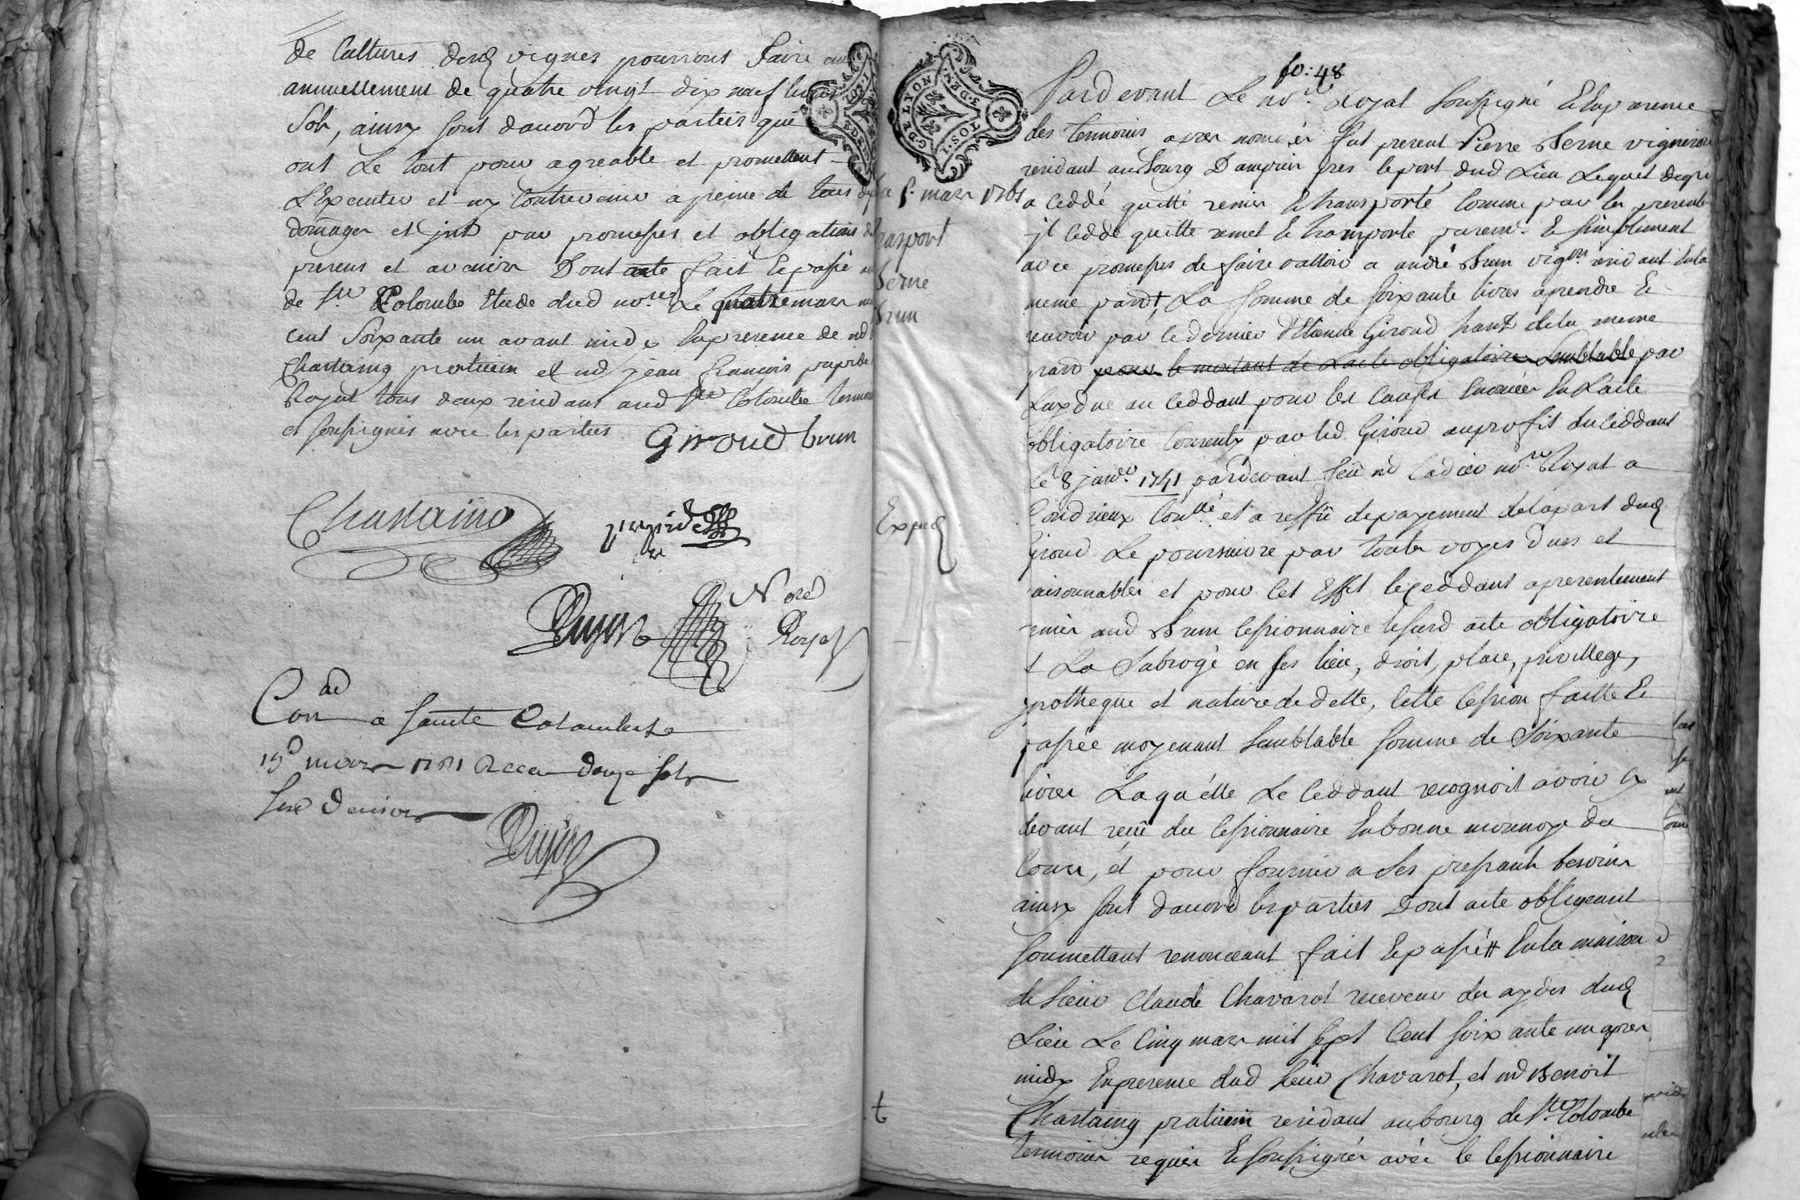 de Cultures desd vignes pourront faire
annuellement de quatre vingt dix neuf livres
Sols, ainsy sont daccord les parties qui
ont Le tout pour agreable et promettent
L'Executer et ny Contrevenir a peine de tous
domages et jnts par promesses et obligations
presens et avenir Dont acte fait & passé
de Ste Colombe Etude dud nore Le quatre mars
cent Soixante un avant midy En presence de
Chastaing praticien et jean françois
Royal tous deux residans aud Ste Colombe
et soussignés avec les parties Giroud brun
Chastaing
Dujon Nore
Royal
Conad a sainte Colombe le
15 mars 1761 Receu douze sols
Six deniers
Dujon
fo: 48
G. DE LYON
I. SOL
3. DEN.
5 mars 1761
Serve
Brun
Exped
t
Pardevant Le nore Royal soussigné & En presence
des temoins apres nommés fut present Pierre Serve vigneron
residant au Bourg D'ampuis pres le port dud Lieu Lequel
a ceddé quitté remis & transporté Comme par les presentes
jl cedde quitte remet & transporte purement & simplement
avec promesses de faire valloir a andré Brun vigon residant En la
meme parse, La somme de soixante livres a prendre &
recevoir par ce dernier d'Etienne Giroud hant de la meme
parse pour le montant de L'acte obligatoire semblable par
Luy due au Ceddant pour les causes Enoncées En L'acte
obligatoire Consenty par led Giroud au profit du Ceddant
Le 8 janver 1741 pardevant feu Cadier nore Royal a
Condrieux Conllé et a reffu de payement de la part dud
Giroud Le poursuivre par toutes voyes dues et
raisonnables et pour Cet Effet le Ceddant a presentement
remis aud Brun Cessionnaire Le susd acte obligatoire
& La Subrogé en ses lieu, droit, place, privillege,
ypotheque et nature de dette, Cette Cession faitte &
passée moyenant semblable somme de Soixante
livres Laquelle Le Ceddant recognoit avoir cy
devant reçu du Cessionnaire En bonne monnoye du
Cours, et pour fournir a ses pressants besoins
ainsy sont daccord les parties Dont acte obligeant
soumettant renonceant fait & passé En la maison
de sieur Claude Chavarot receveur des aydes dud
Lieu Le Cinq mars mil sept Cent soixante un apres
midy En presence dud sieur Chavarot, et Benoit
Chastaing praticien residant au bourg de Ste Colombe
temoins requis & soussignés avec le Cessionnaire